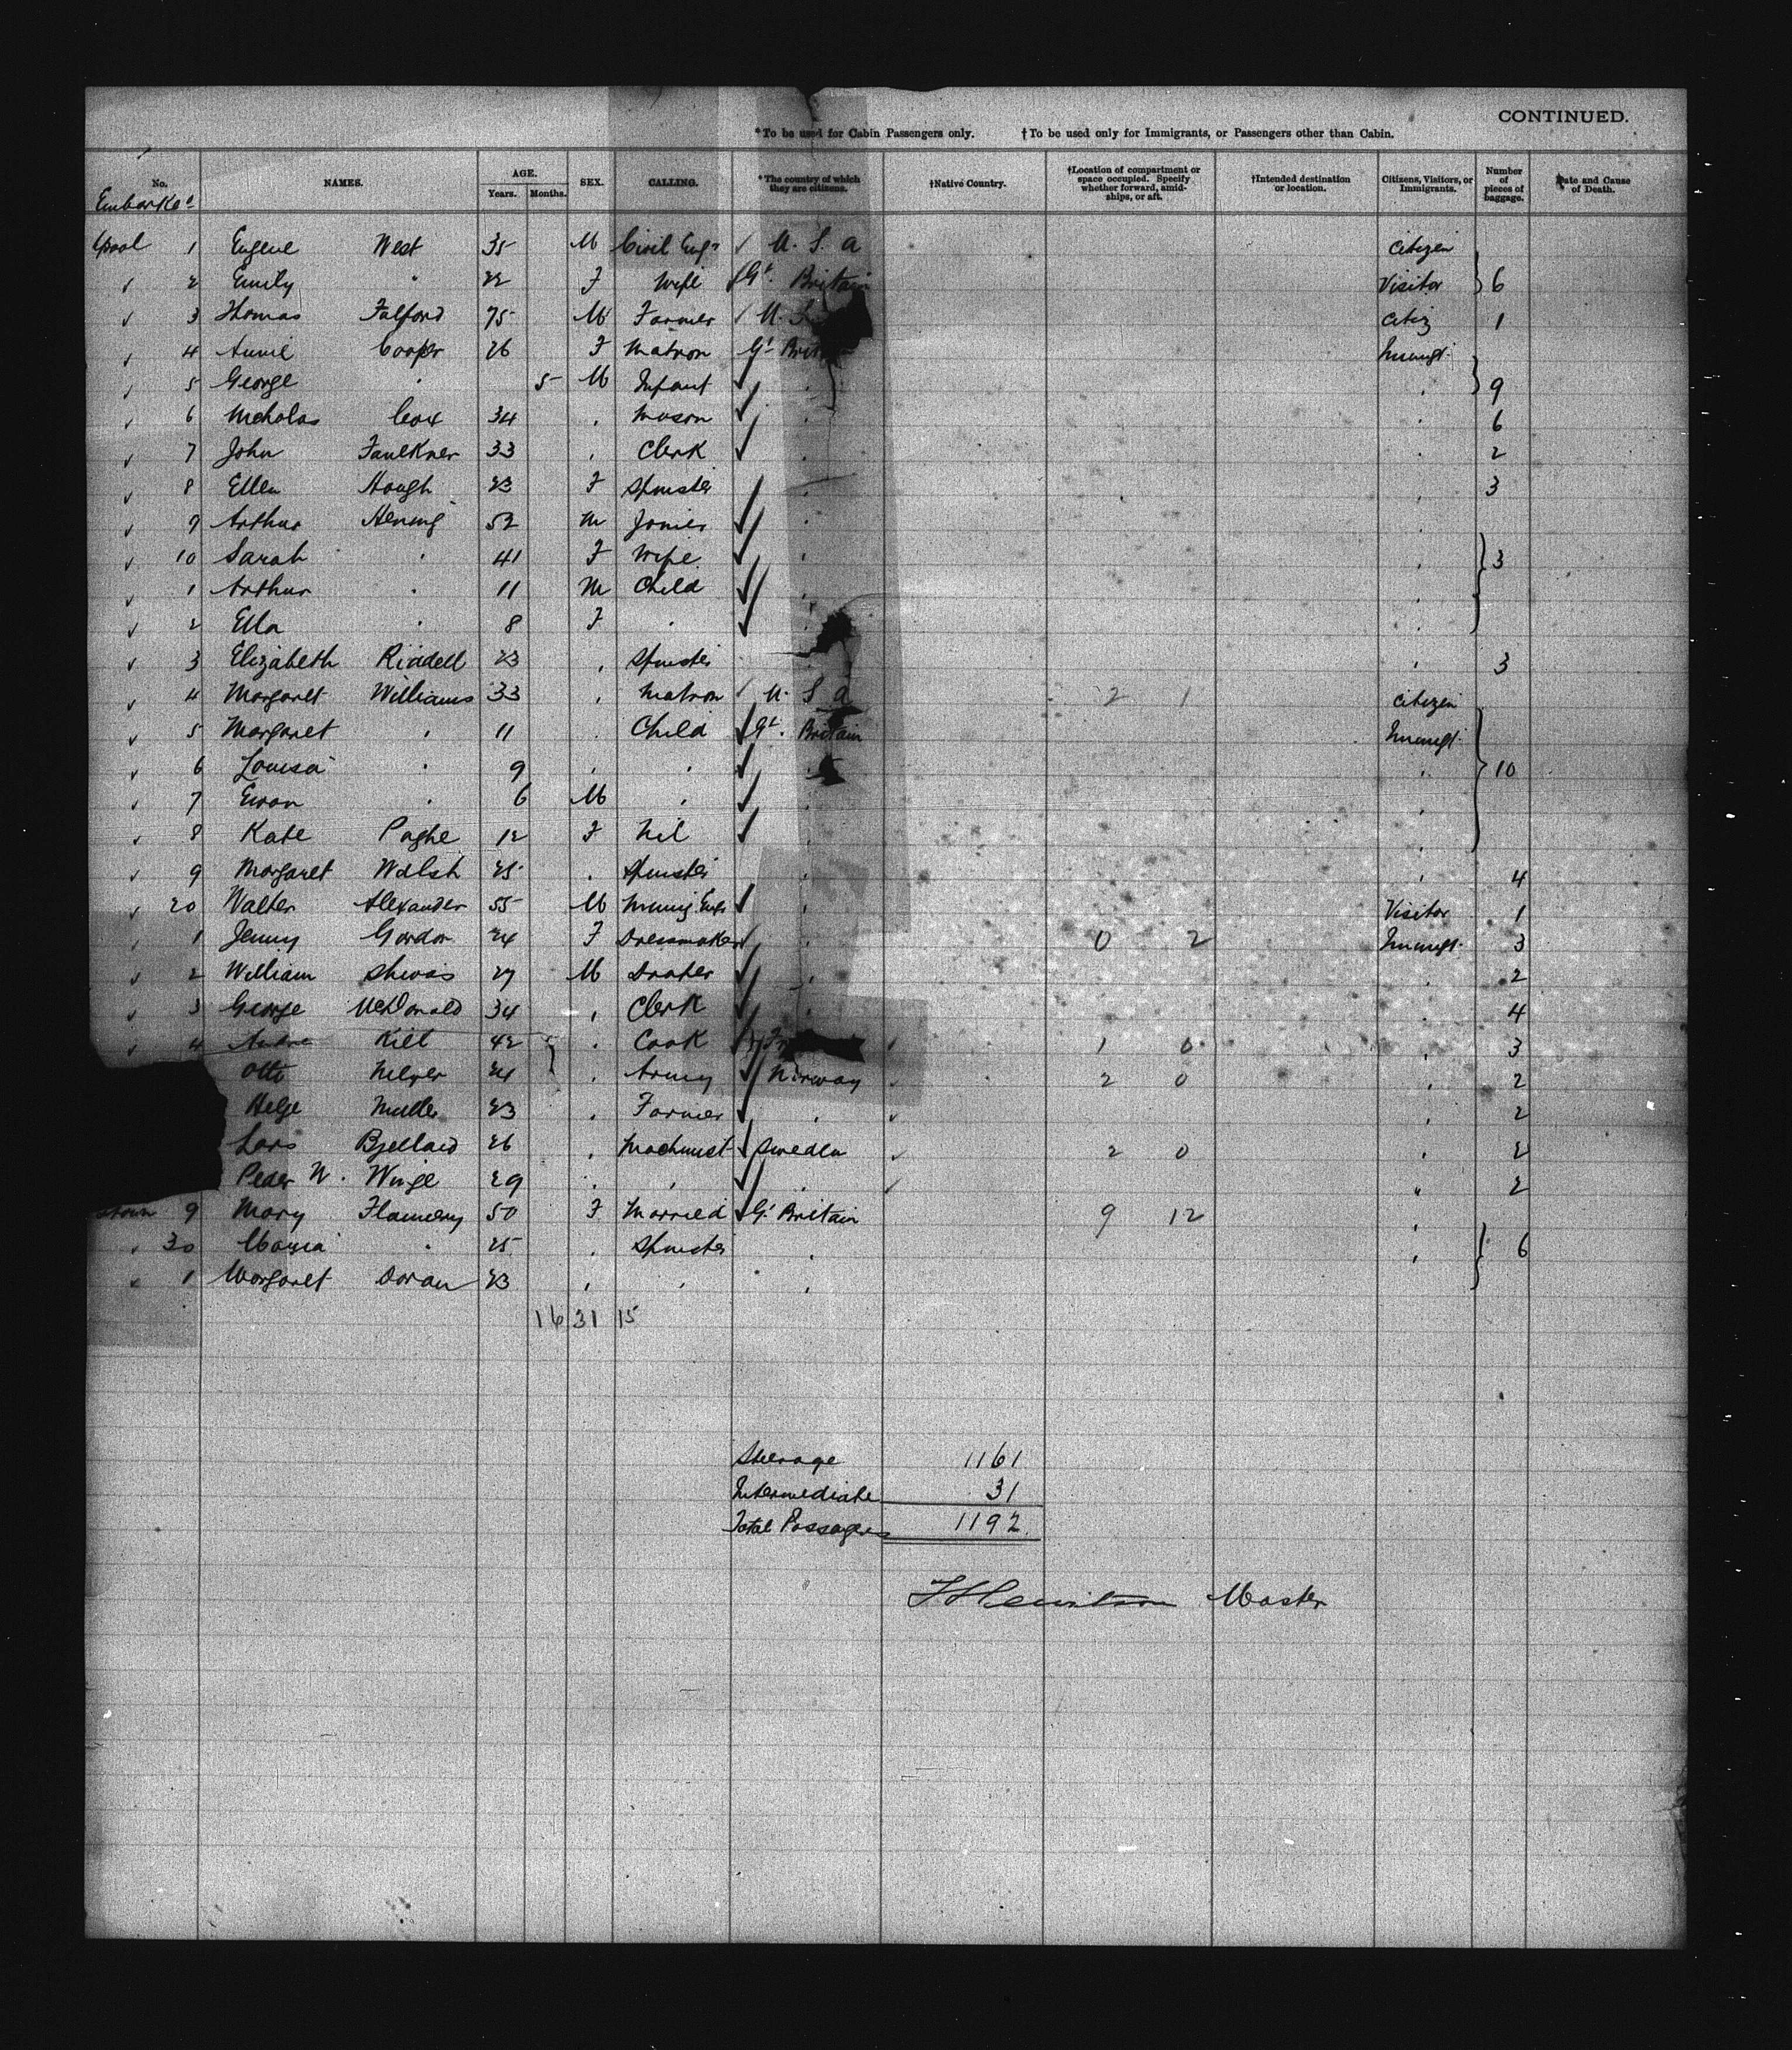 CONTINUED.
*To be used for Cabin Passengers only. †To be used only for Immigrants, or Passengers other than Cabin.
No. NAMES. AGE. Years. Months. SEX. CALLING. *The country of which they are citizens. †Native Country. †Location of compartment or space occupied. Specify whether forward, amidships, or aft. †Intended destination or location. Citizens, Visitors, or Immigrants. Number of pieces of baggage. Date and Cause of Death.
Embarked
Lpool 1 Eugene West 35 M Civil Engr U. S. A Citizen
2 Emily " 22 F Wife Gt. Britain Visitor 6
3 Thomas Fulford 75 M Farmer U. S. Citiz 1
4 Annie Cooper 26 F Matron Gt Brit Immigt.
5 George " 5 M Infant " " 9
6 Nicholas Cox 34 " Mason " " 6
7 John Faulkner 33 " Clerk " " 2
8 Ellen Hough 23 F Spinster " " 3
9 Arthur Hening 52 M Joiner " "
10 Sarah " 41 F Wife " " 3
1 Arthur " 11 M Child " "
2 Ella " 8 F " " "
3 Elizabeth Riddell 23 " Spinster " " 3
4 Margaret Williams 33 " Matron U. S A 2 1 Citizen
5 Margaret " 11 " Child Gt. Britain Immigt.
6 Louisa " 9 " " " " 10
7 Evan " 6 M " " "
8 Kate Paghe 12 F Nil "
9 Margaret Walsh 25 " Spinster " " 4
20 Walter Alexander 55 M Mining Engr " Visitor 1
1 Jenny Gordon 24 F Dressmaker " 0 2 Immigt. 3
2 William Shivas 27 M Draper " " 2
3 George McDonald 34 " Clerk " 4
4 Kill 42 " Cook 1 0 " 3
Otto 24 " Army Norway 2 0 " 2
Helge Muller 23 " Farmer " " 2
Lars Bjelland 26 " Machinist Sweden 2 0 " 2
Peder N. Winge 29 " " " " 2
town 9 Mary Flannery 50 F Married Gt Britain 9 12 "
30 Maria " 25 " Spinster " " 6
1 Margaret Doran 23 " " "
16 31 15
Steerage 1161
Intermediate 31
Total Passagers 1192
Hewitson Master